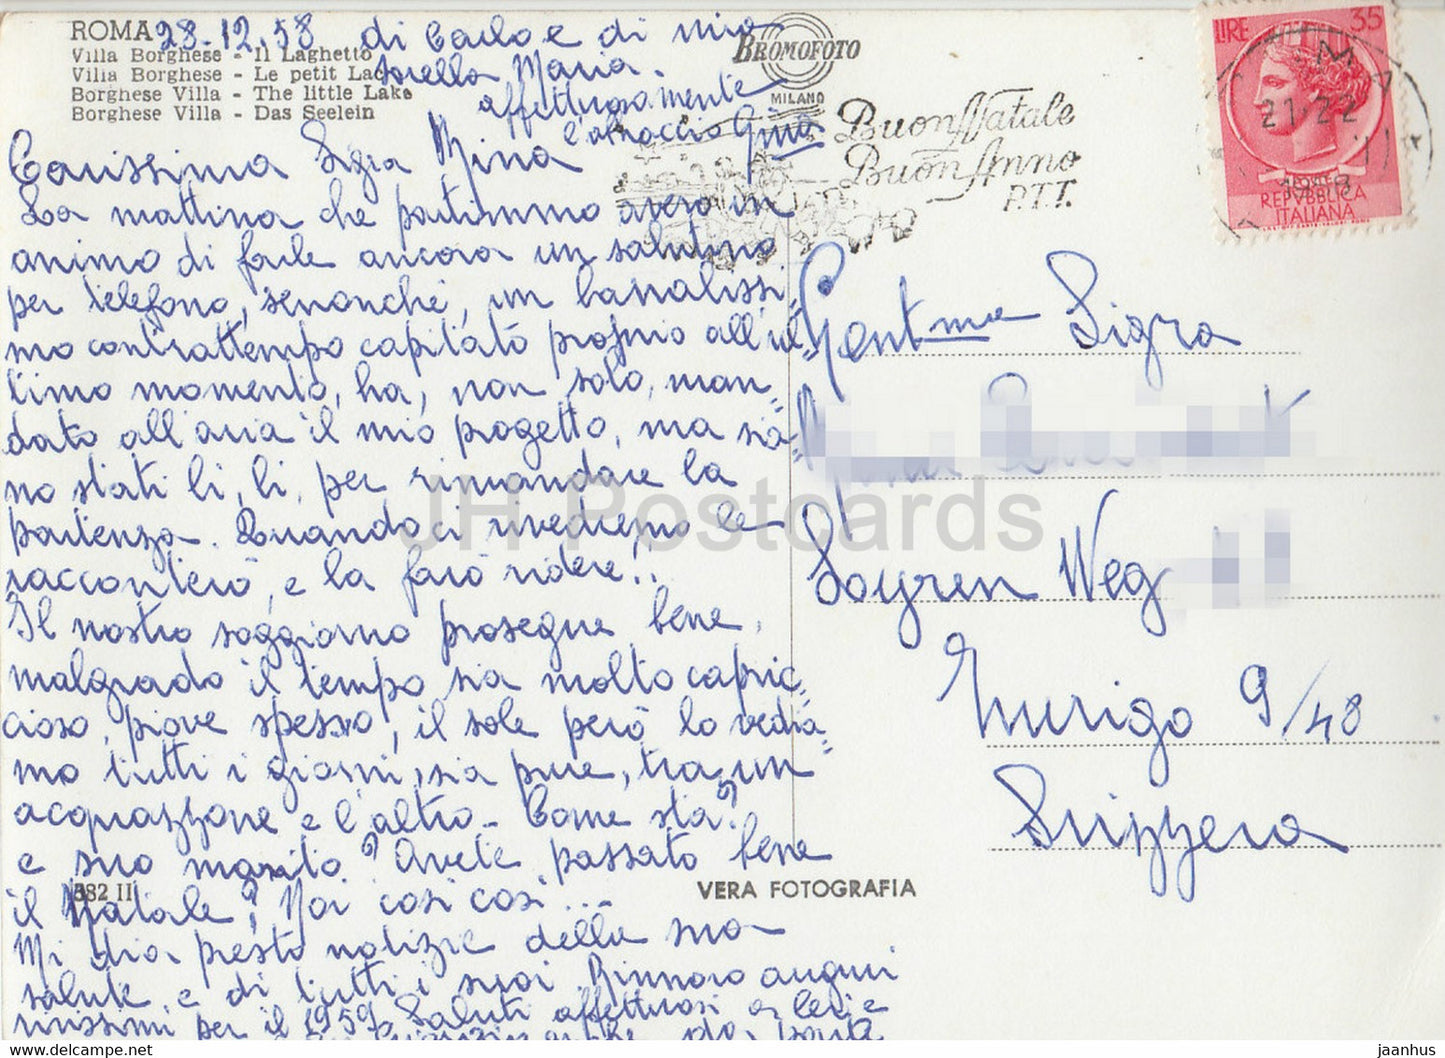 ROMA
Villa Borghese - Il Laghetto
Villa Borghese - Le petit Lac
Borghese Villa - The little Lake
Borghese Villa - Das Seelein
28-12.58 di Carlo e di mia
sorella Maria.
affettuosamente
l'abbraccio Gina
BROMOFOTO
MILANO
Buon Natale
Buon Anno
P.T.T.
LIRE 35
REPVBBLICA
ITALIANA
21-22
Carissima Sigra Mina
La mattina che partimmo avevo in
animo di farle ancora un salutino
per telefono, senonché, un banalissi-
mo contrattempo capitato proprio all'ul-
timo momento, ha, non solo, man-
dato all'aria il mio progetto, ma sia-
mo stati lì, lì, per rimandare la
partenza. Quando ci rivedremo le
racconterò, e la farò ridere!.
Il nostro soggiorno prosegue bene,
malgrado il tempo sia molto capric-
cioso, piove spesso, il sole però lo vedia-
mo tutti i giorni, sia pure, tra un
acquazzone e l'altro. Come sta?
e suo marito? Avete passato bene
il Natale? Noi così così...
Mi dia presto notizie della sua
salute e di tutti i suoi. Rinnovo auguri
vivissimi per il 1959. Saluti affettuosi a lei e
anche da parte
Gentma Sigra
Loyren Weg
Zurigo 9/48
Svizzera
382 II
VERA FOTOGRAFIA
JH Postcards
https://www.hippostcard.com/store/jaanhus